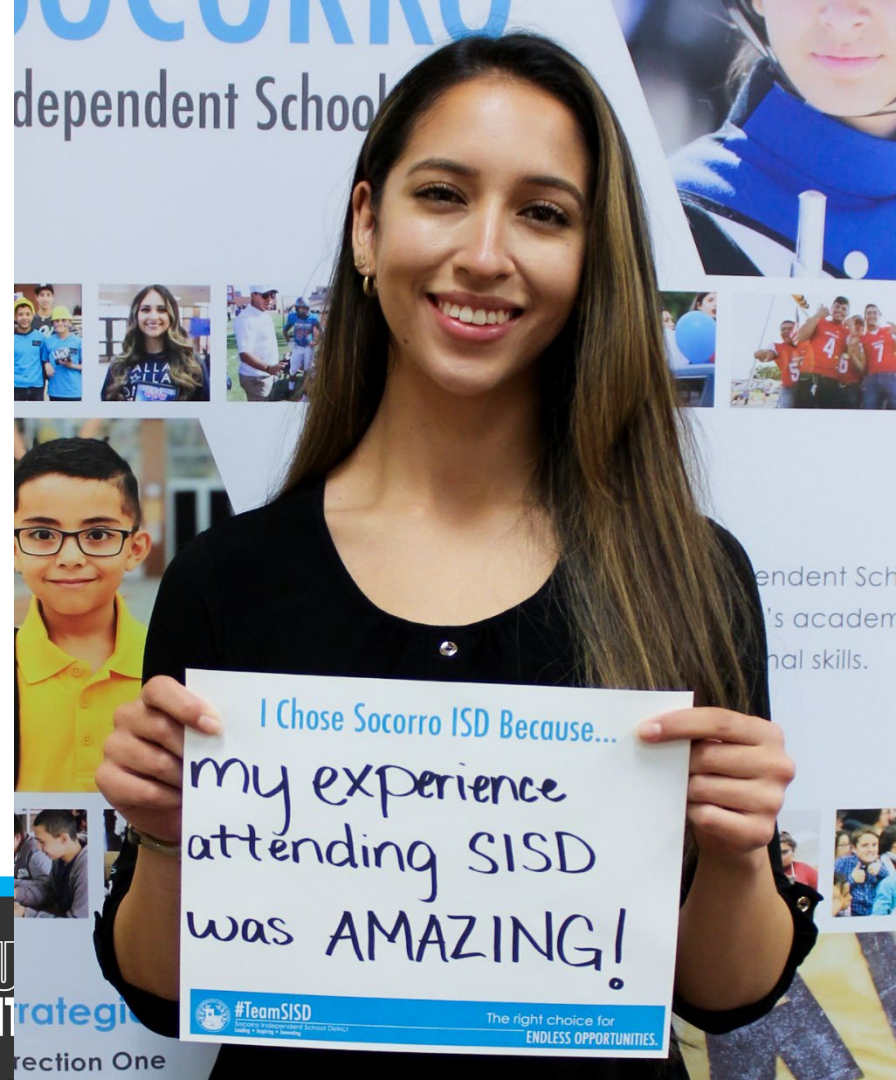 SOCORRO
dependent School
endent Sch
's academ
nal skills.
I Chose Socorro ISD Because...
my experience
attending SISD
was AMAZING!
#TeamSISD
Socorro Independent School District
Leading • Inspiring • Innovating
The right choice for
ENDLESS OPPORTUNITIES.
rategi
rection One